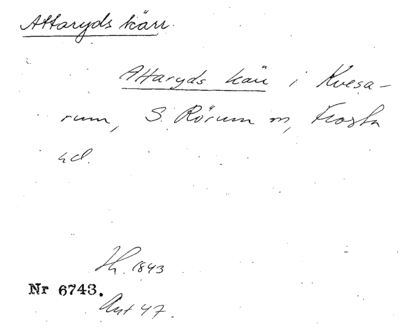 Attaryds kärr.
Attaryds kärr i Kvesa-
rum, S. Rörum sn, Frosta
hd.
Th. 1843
Nr 6743.
Ant 47.